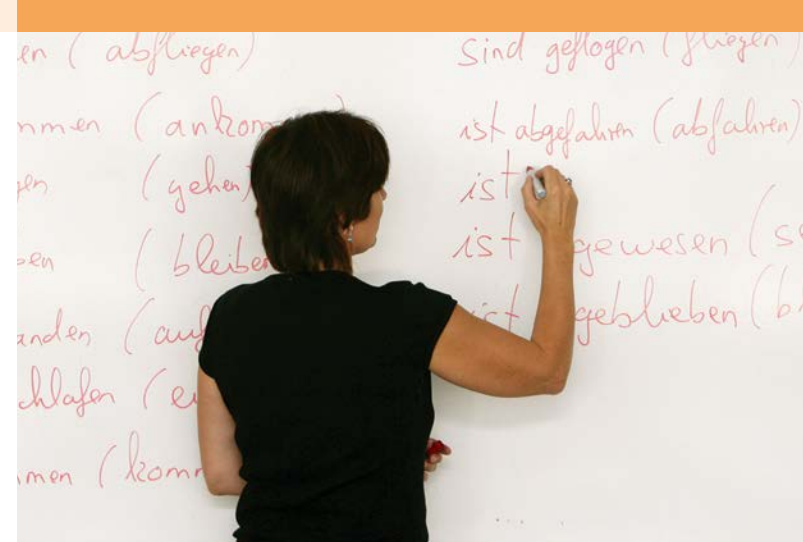 en (abfliegen)
mmen (ankom
gen (gehen)
ben (bleiben
anden (auf
chlafen (ei
mmen (komm
sind geflogen (fliegen)
ist abgefahren (abfahren)
ist
ist gewesen (se
ist geblieben (b